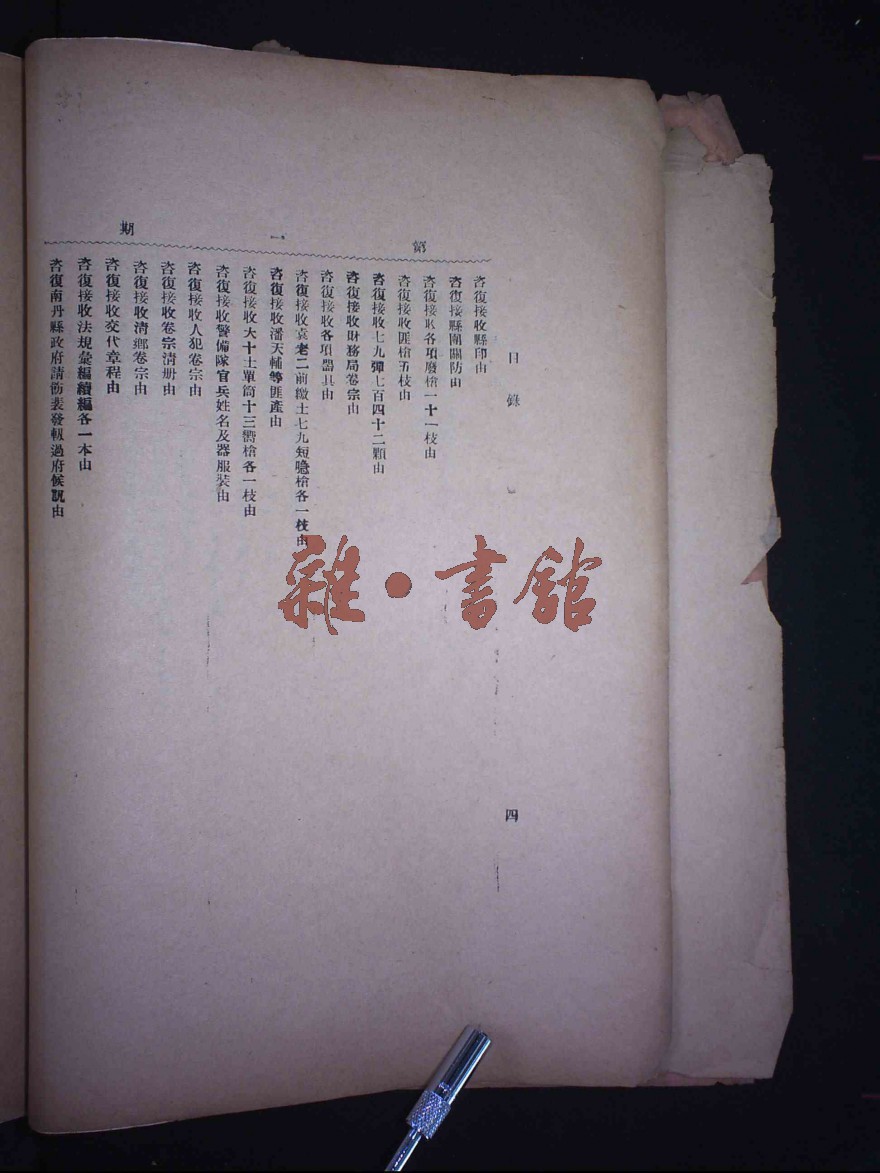 目錄
四
第一期
咨復接收縣印由
咨復接縣團關防由
咨復接收各項廢槍一十一枝由
咨復接收匪槍五枝由
咨復接收七九彈七百四十二顆由
咨復接收財務局卷宗由
咨復接收各項器具由
咨復接收袁老二前繳土七九短嘥槍各一枝由
咨復接收潘天輔等匪產由
咨復接收大十土單筒十三響槍各一枝由
咨復接收警備隊官兵姓名及器服裝由
咨復接收人犯卷宗由
咨復接收卷宗清册由
咨復接收清鄉卷宗由
咨復接收交代章程由
咨復接收法規彙編續編各一本由
咨復南丹縣政府請飭裴發輗過府候訊由
雜·書館